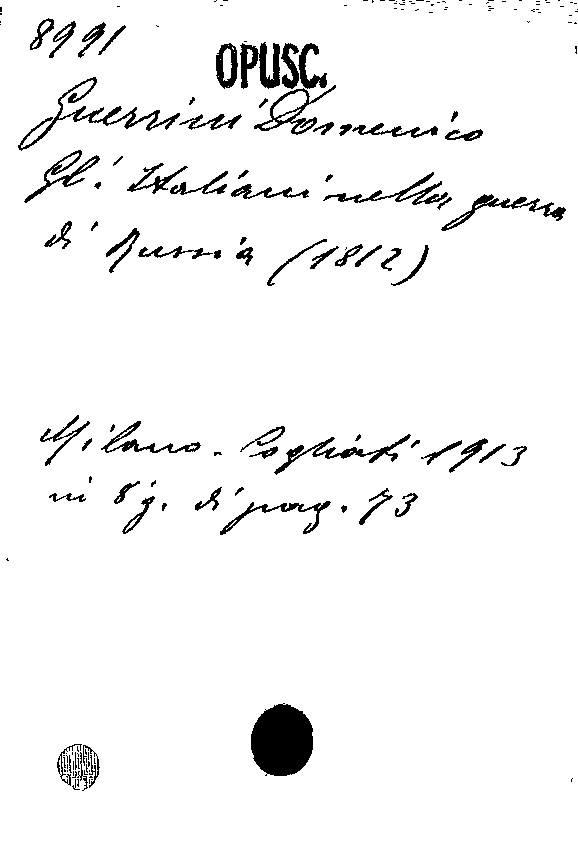 8991
OPUSC.
Guerrini Domenico
Gli Italiani nella guerra
di Russia (1812)
Milano - Cogliati 1913
in 8 g. di pag. 73